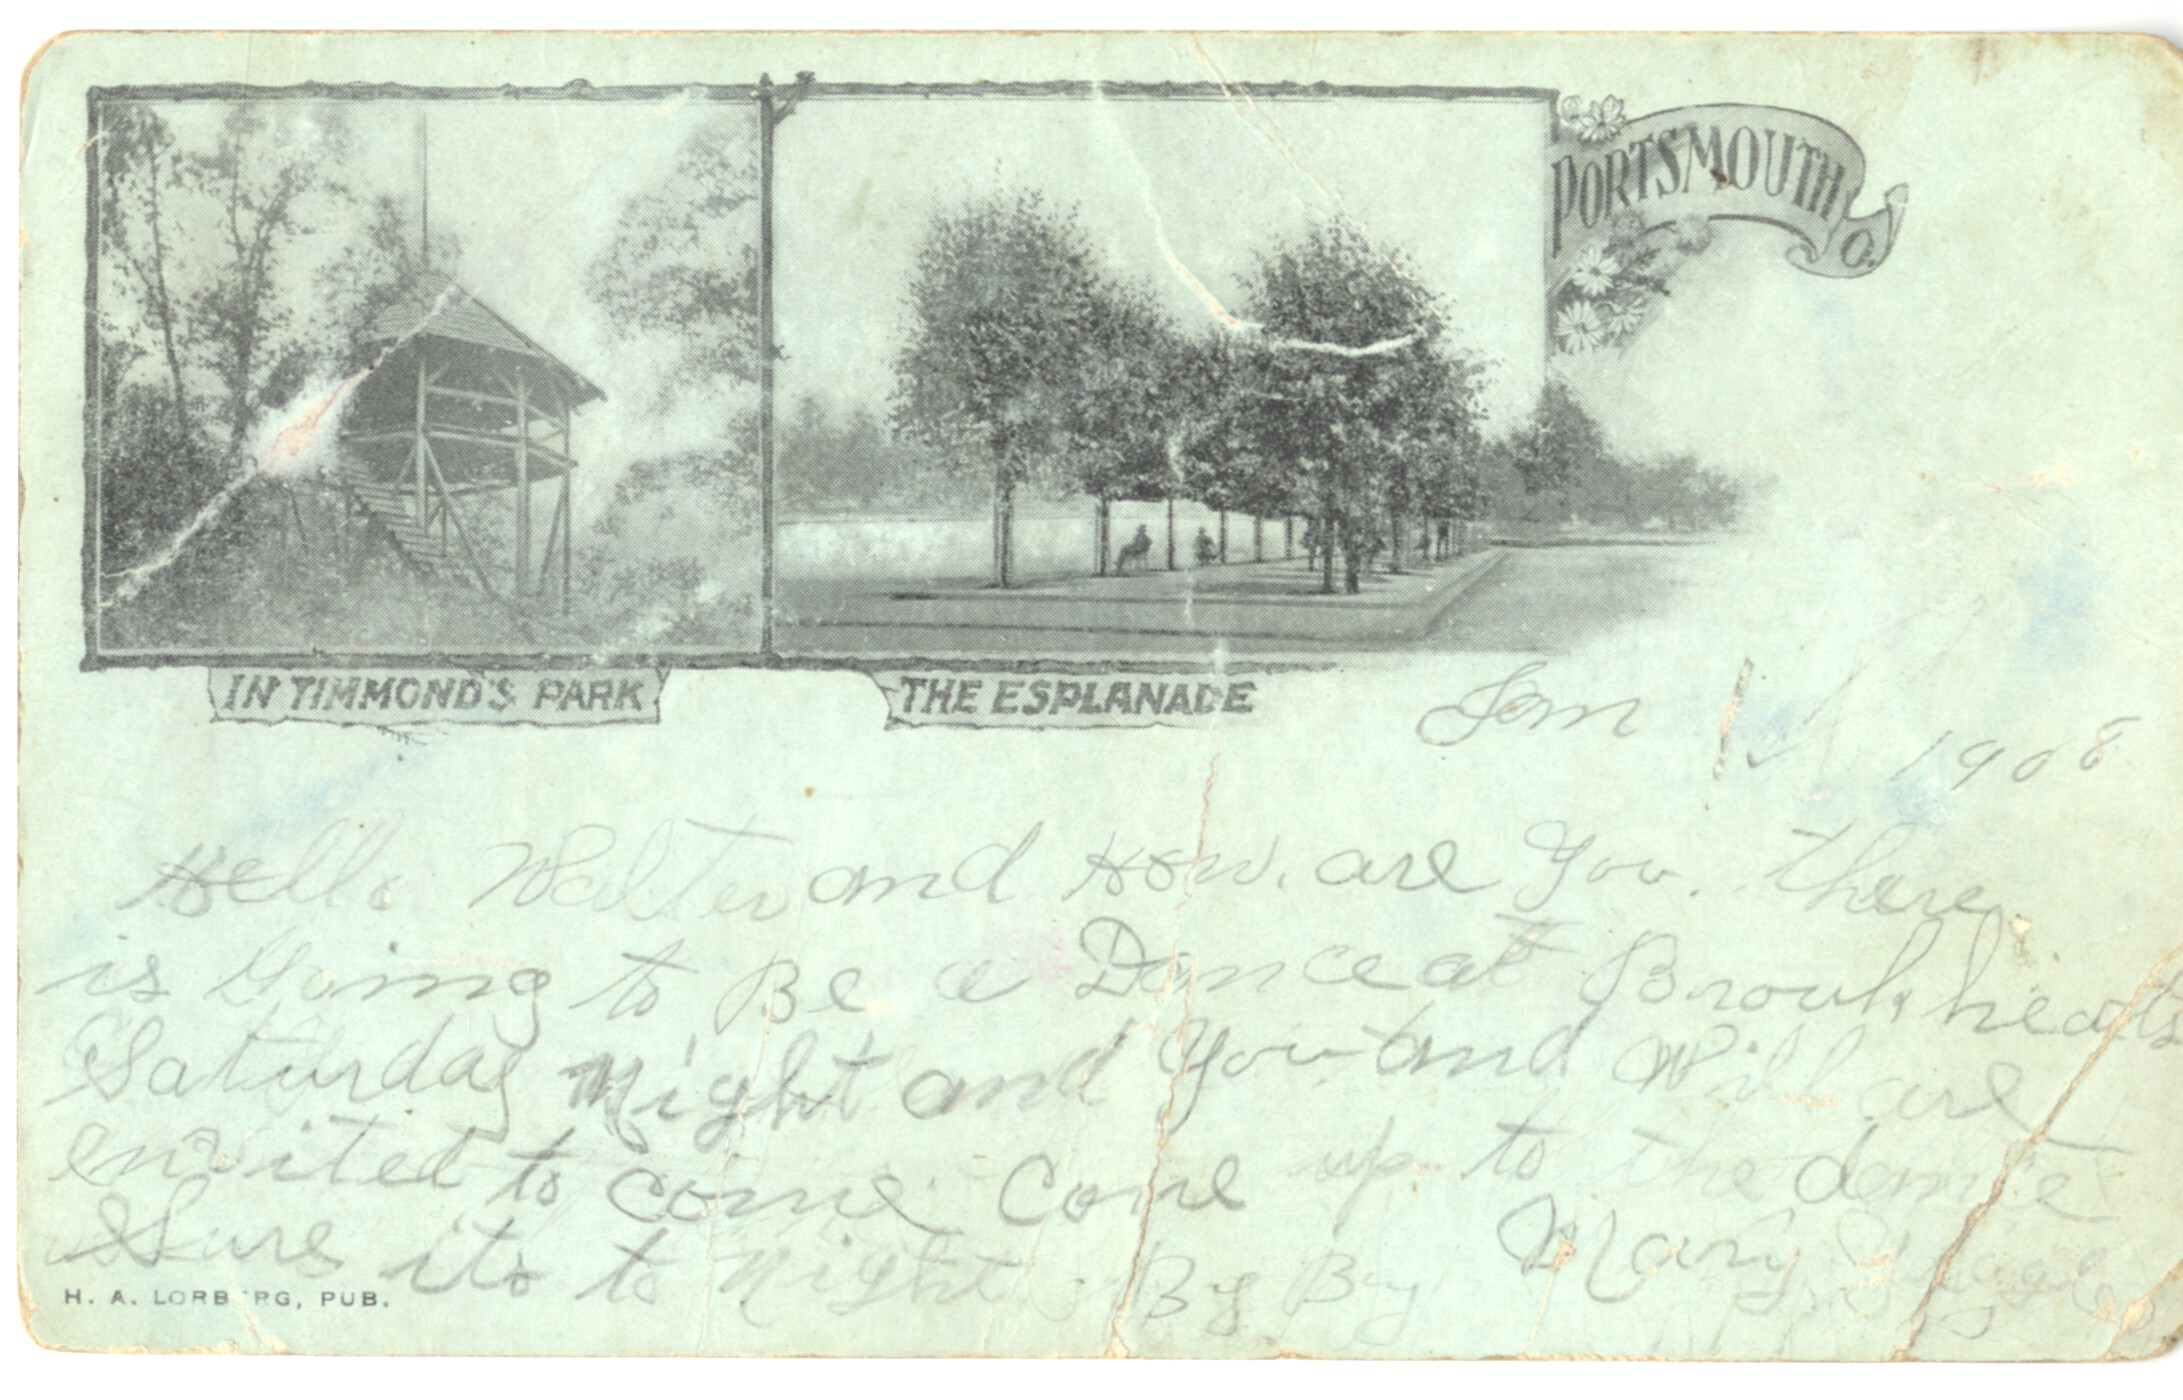 PORTSMOUTH O.
IN TIMMOND'S PARK
THE ESPLANADE
Jan 1 1908
Hello Walter and How are You. there
is Going to Be a Dance at
Saturday Night and You and Will are
envited to come. Come up to the dance
Sure its to Night By By Mary
H. A. LORBERG, PUB.